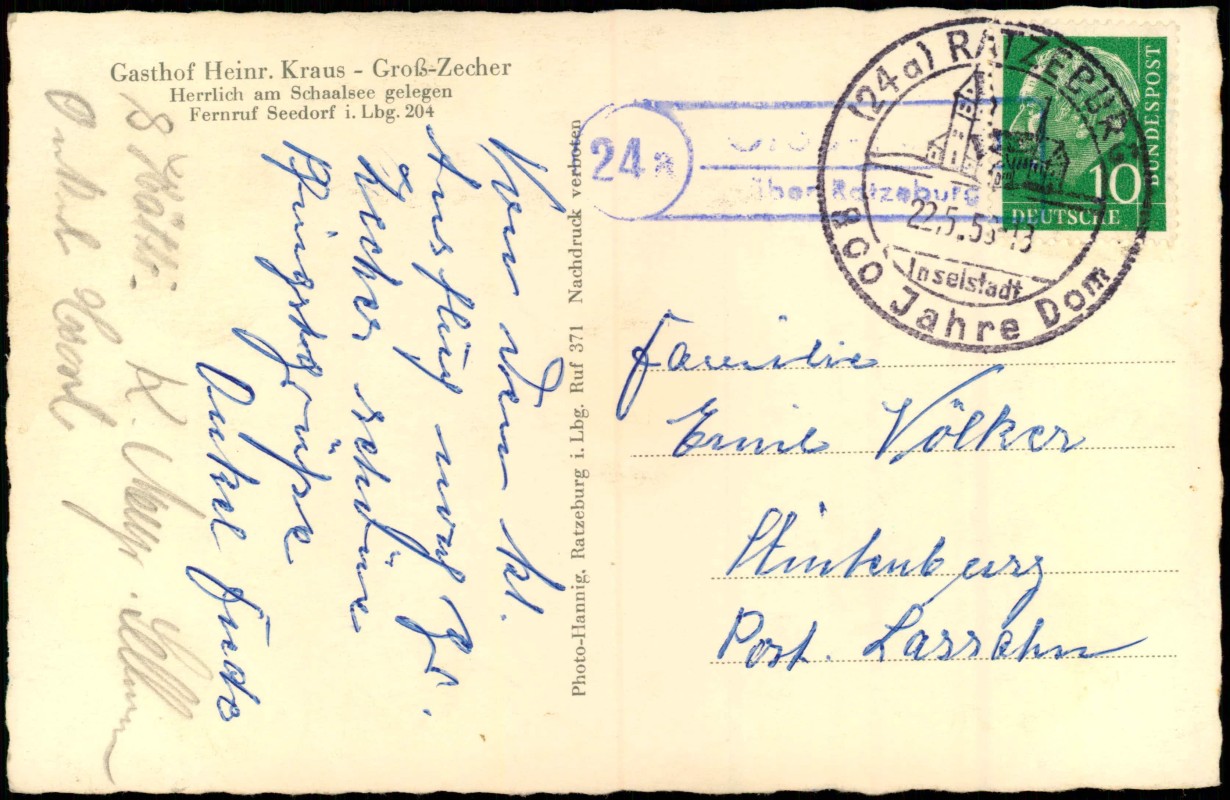 Gasthof Heinr. Kraus - Groß-Zecher
Herrlich am Schaalsee gelegen
Fernruf Seedorf i. Lbg. 204
Vom dem kl.
Ausflug nach Gr.
Zecher schöne
Pfingstgrüße
Onkel
Onkel
K.
Photo-Hannig, Ratzeburg i. Lbg. Ruf 371 Nachdruck verboten
24a
über Ratzeburg
(24a) RATZEBURG
22.5.5 -13
Inselstadt
800 Jahre Dom
BUNDESPOST
10
DEUTSCHE
Familie
Emil Völker
Stintenburg
Post. Lassahn